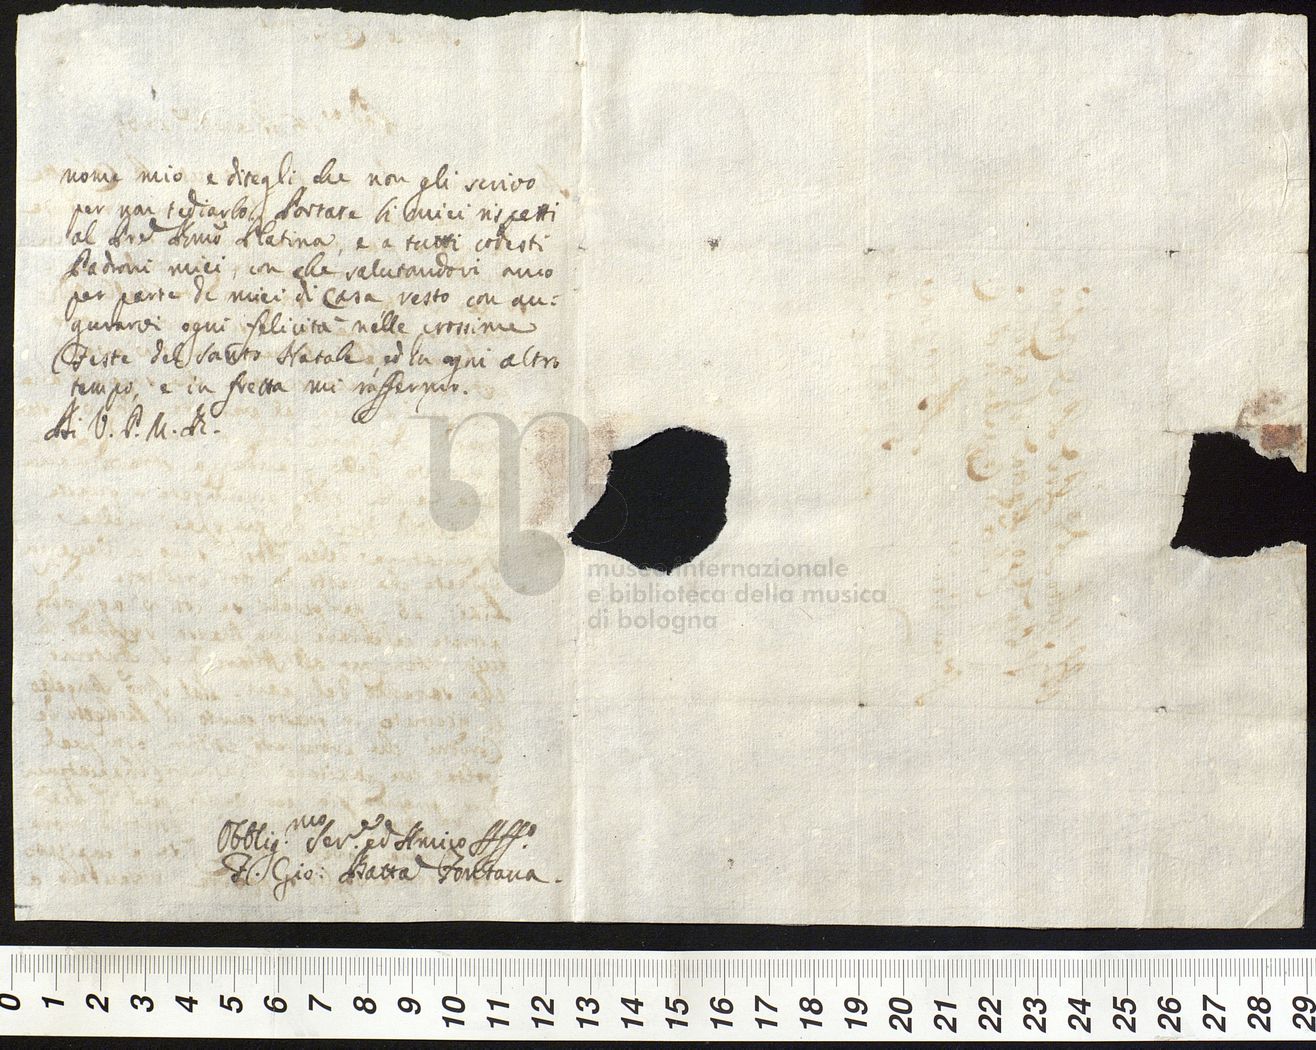 nome mio e ditegli che non gli scrivo
per non tediarlo. Portate li miei rispetti
al Pre Rmo Platina, e a tutti codesti
Padroni miei, con che salutandovi anco
per parte de miei di Casa resto con au=
gurarvi ogni felicità nelle prossime
Feste del Santo Natale, ed in ogni altro
tempo, e in fretta mi raffermo.
Di V. P. M. R.
Obblig.mo Ser.e ed Amico Aff.o
F. Gio: Batta Fontana.
museo internazionale
e biblioteca della musica
di bologna
0 1 2 3 4 5 6 7 8 9 10 11 12 13 14 15 16 17 18 19 20 21 22 23 24 25 26 27 28 29